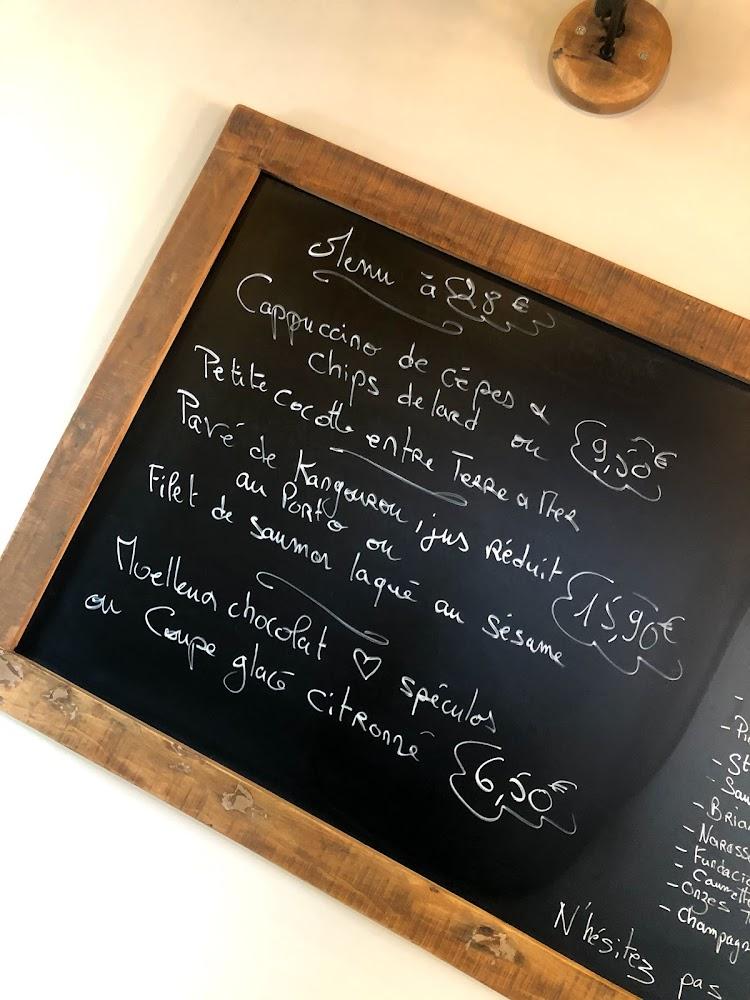 Menu à 28 €
Cappuccino de cépes &
chips de lard ou
9,50 €
Petite cocotte entre Terre & Mer
Pavé de Kangourou, jus réduit
au Porto ou
Filet de saumon laqué au sésame
15,90 €
Moelleux chocolat ♡ spéculos
ou Coupe glacé citronné
6,50 €
- Bria
- Narass
- Fundacio
- Onzes
- Champagn
N'hésitez pas